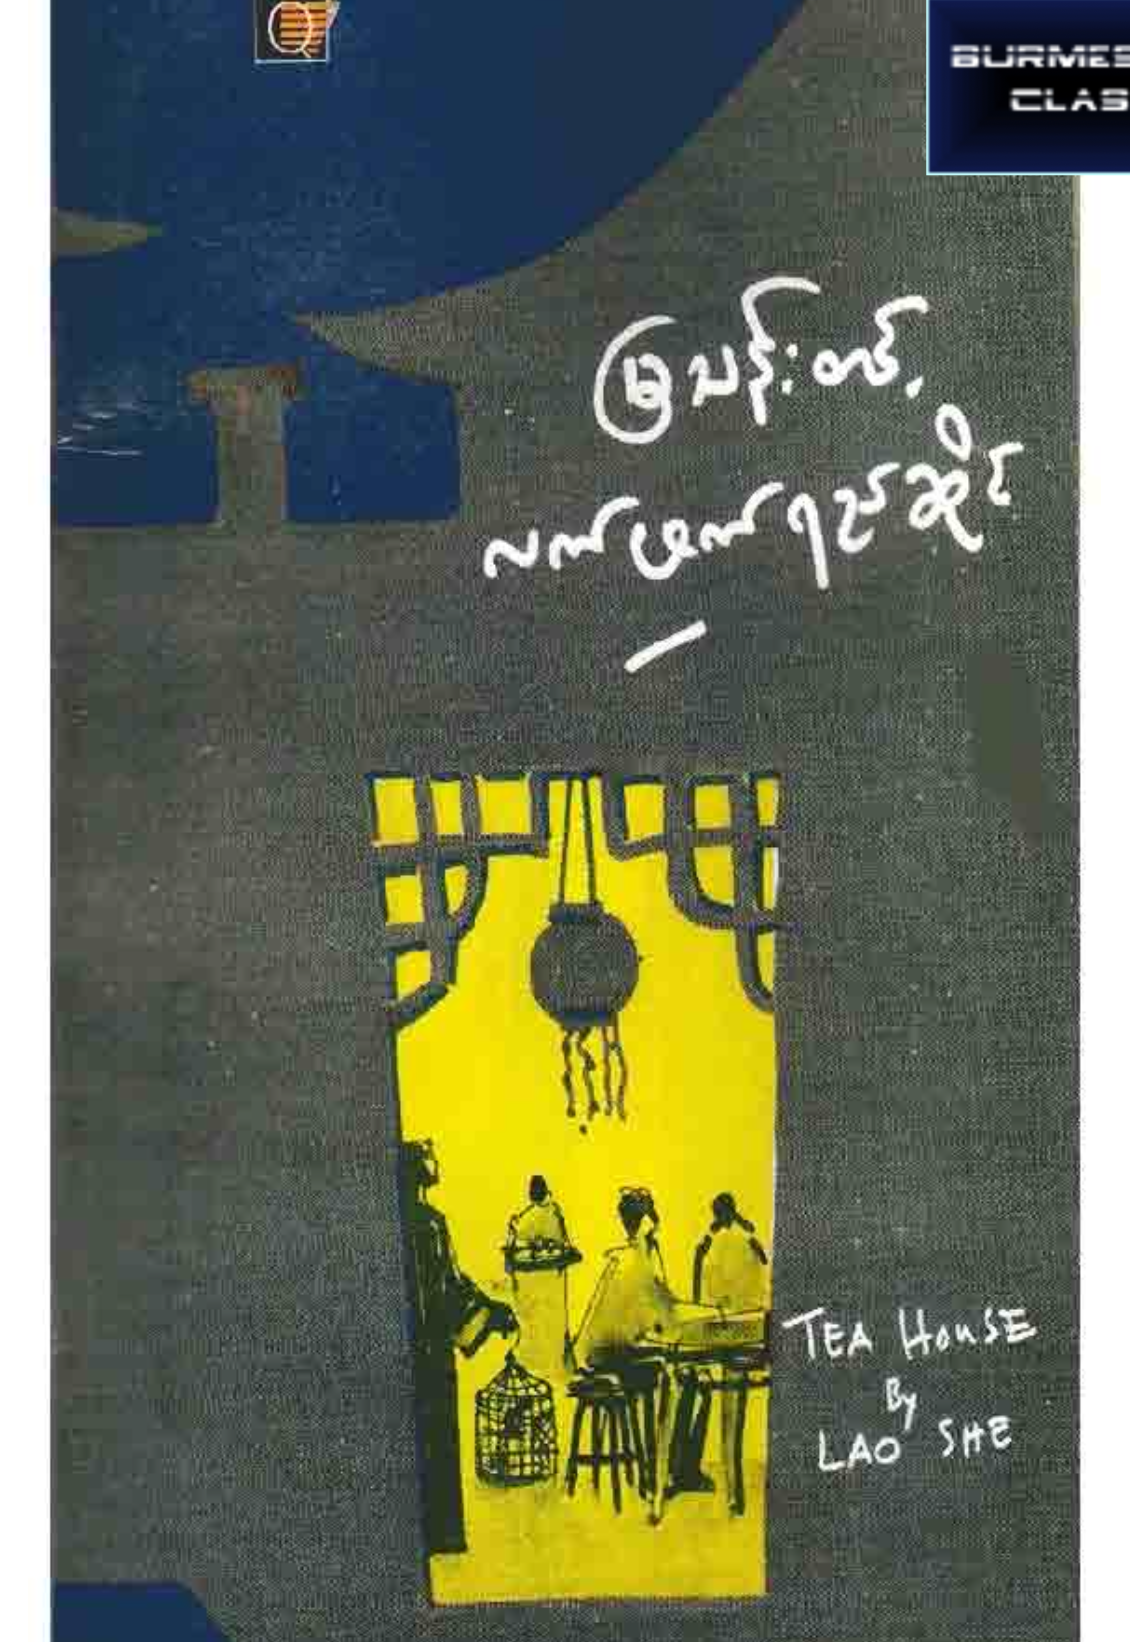 BURMES
CLAS
မြသန်းတင့်
လက်ဖက်ရည်ဆိုင်
TEA HOUSE
By
LAO SHE